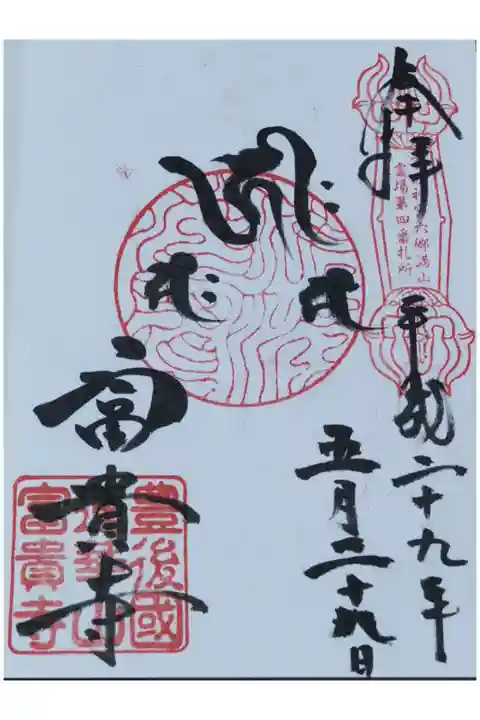 奉拝
神宮六郷満山
霊場第四番札所
平成二十九年
五月二十九日
富貴寺
豊後國
富貴寺